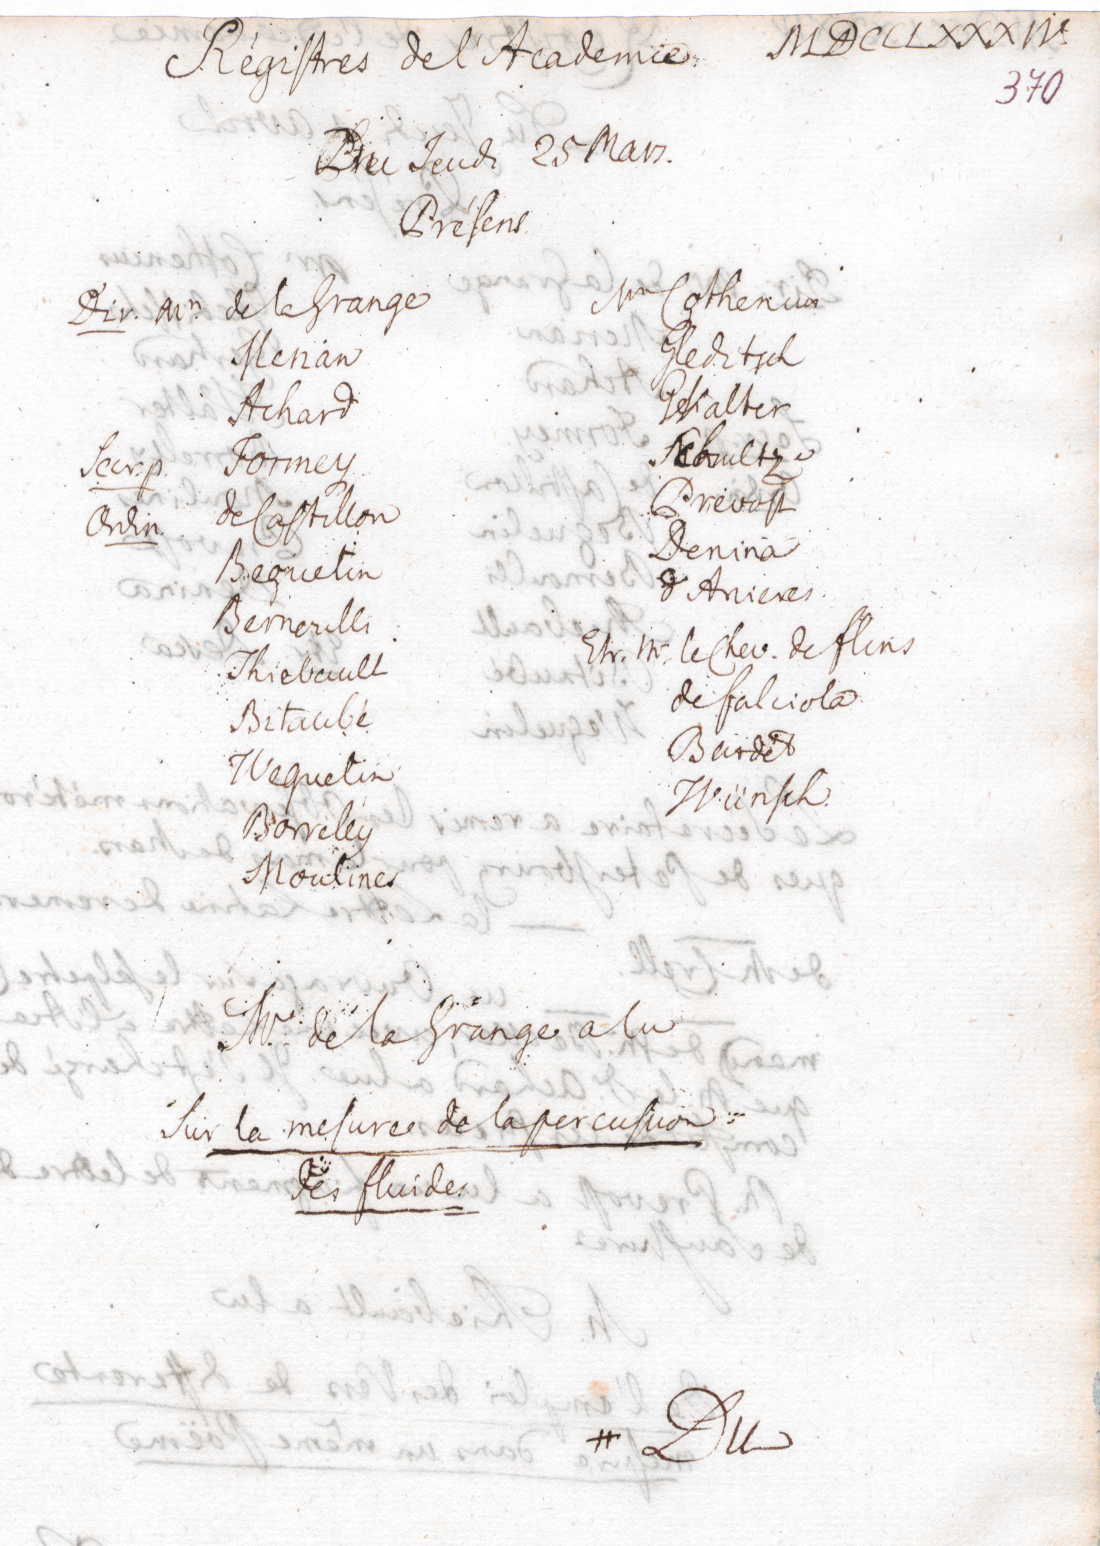 Régistres de l'Academie. MDCCLXXXIV.
370
Du Jeudi 25 Mars.
Présens
Dir. Mrs. de la Grange
Merian
Achard
Secr. p. Formey
Ordin. de Castillon
Beguelin
Bernoulli
Thiebault
Bitaubé
Weguelin
Borrelly
Moulines
Mrs Cothenius
Gleditsch
Walter
Schultz
Prevost
Denina
d'Anieres.
Etr. Mr. le Chev. de flins
de falciola
Burdet
Wünsch.
Mr. de la Grange a lu
Sur la mesure de la percussion
des fluides.
# Du